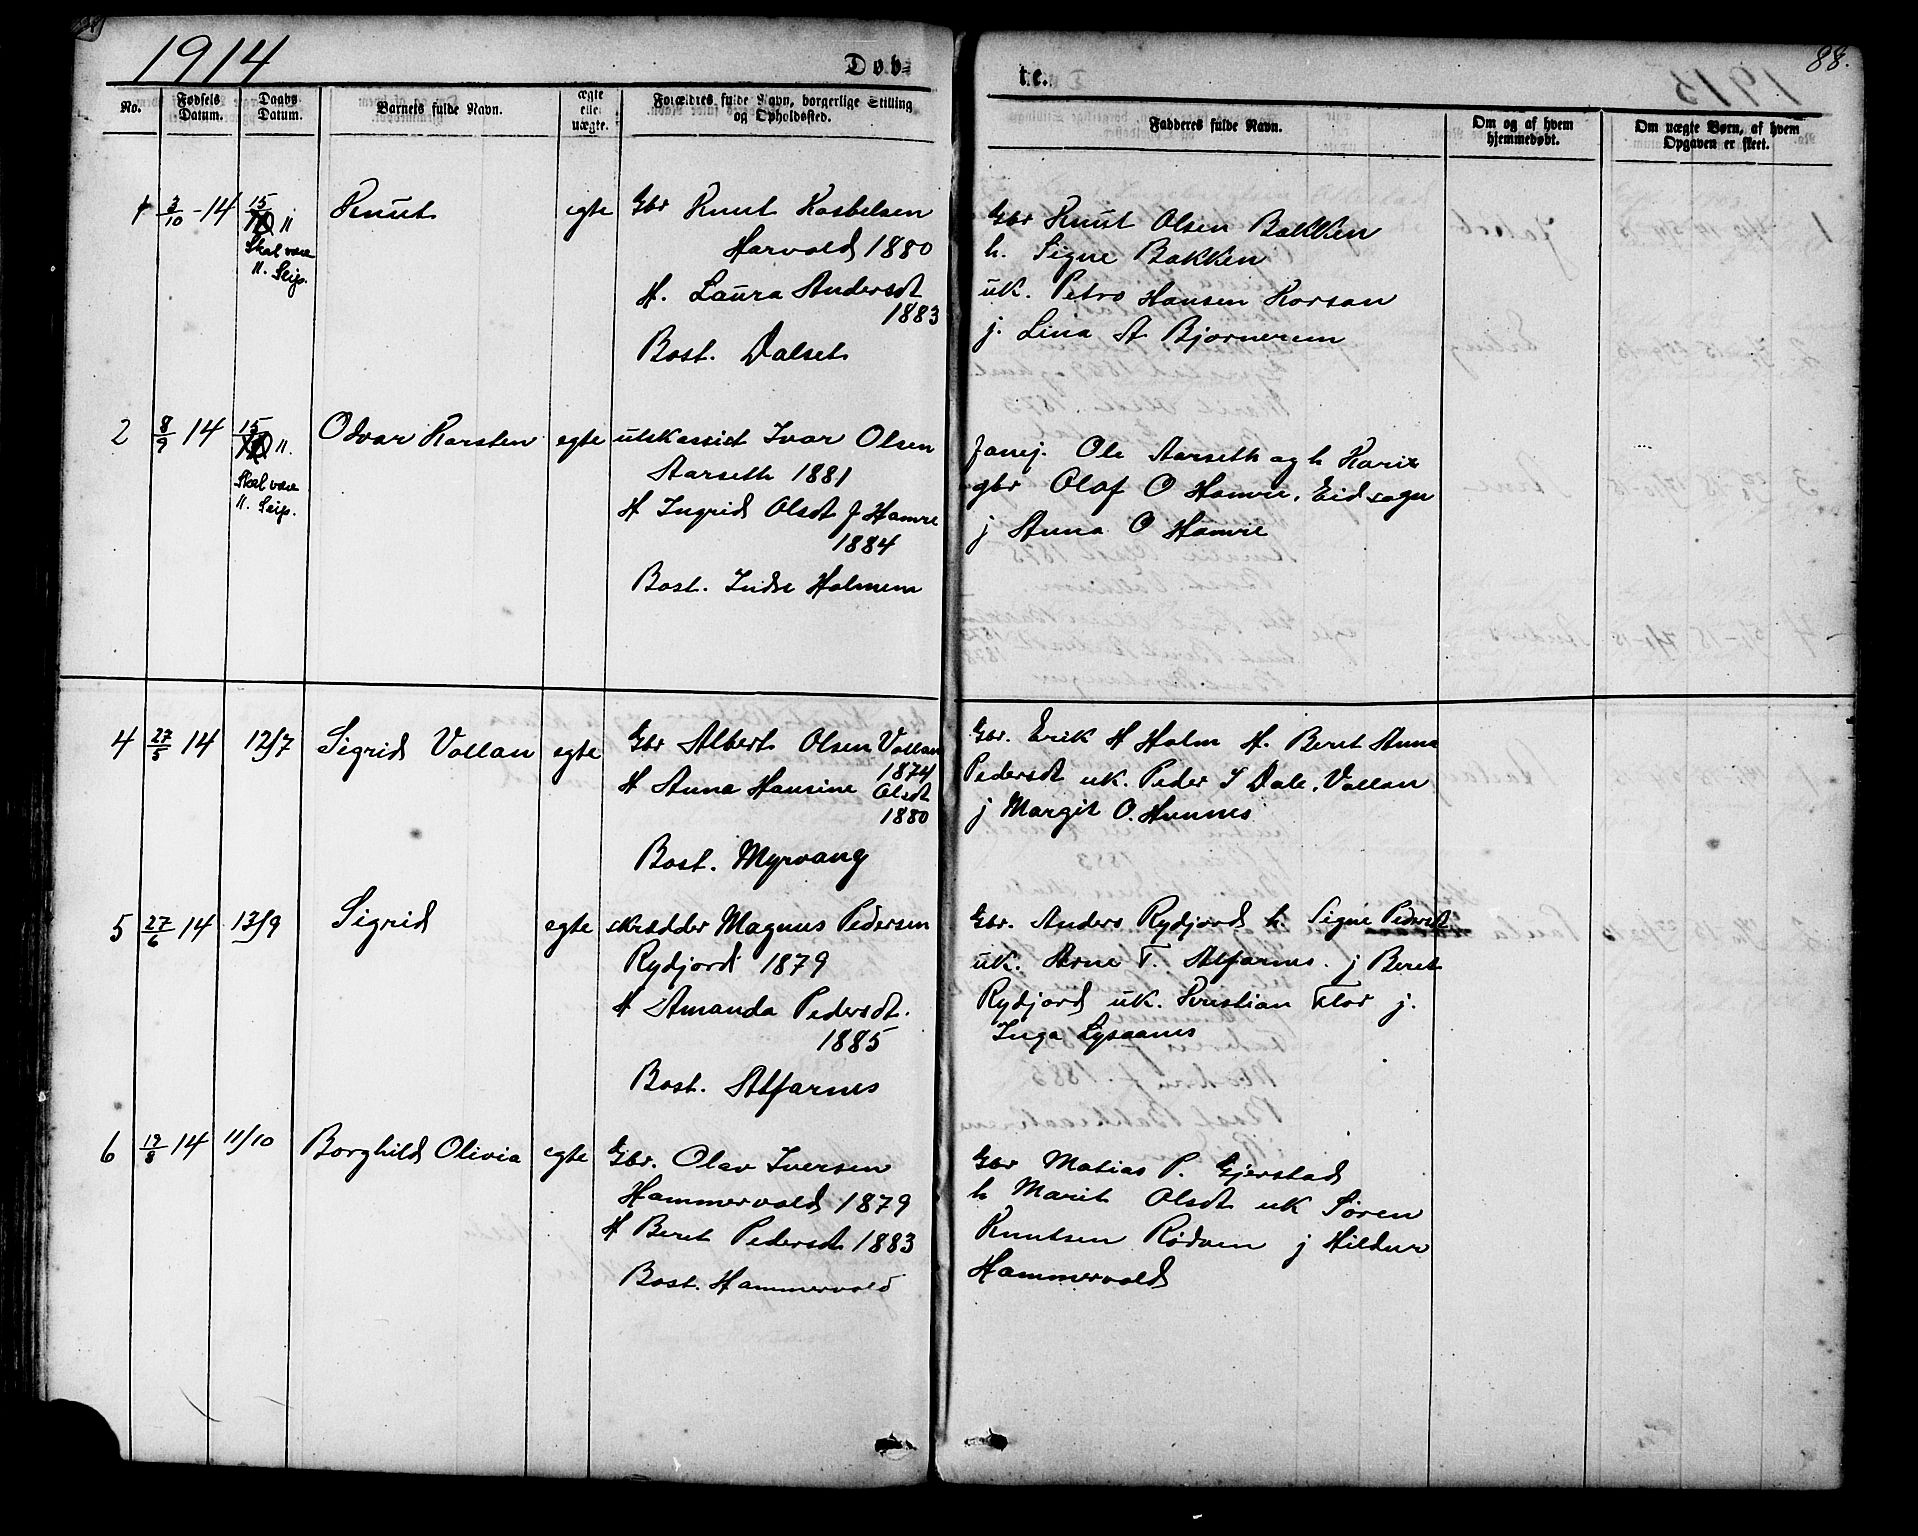 1914
Døb=
te.
88.
No.
Fødsels Datum.
Daabs Datum.
Barnets fulde Navn.
ægte eller uægte.
Forældres fulde Navn, borgerlige Stilling og Opholdssted.
Fadderes fulde Navn.
Om og af hvem hjemmedøbt.
Om uægte Børn, af hvem Opgaven er skeet.
1 3/10 -14 15/11
Skal være
11. Seip.
Knut
egte
Gbr Knut Kosbelsen
Harvold 1880
H. Laura Andersdt
1883
Bost. Dalset
Gbr Knut Olsen Bakken
h. Signe Bakken
uk. Petro Hansen Korsan
j. Lina A Bjørnerem
2 8/9 14 15/11.
Skal være
11. Seip.
Odvar Karsten
egte
utskassist Ivar Olsen
Aarseth 1881
H Ingrid Olsdt f Hamre
1884
Bost. Indre Holmem
Ole Aarseth og h Kari
gbr Olaf O Hamre, Eidsøgn
j Anna O Hamre
4 27/5 14 12/7 Sigrid Vollan egte
Gbr Albert Olsen Vollan
1874
H Anna Hansine Olsdt
1880
Bost. Myrvang
Gbr. Erik H Holm H. Beret Anna
Pedersdt uk. Peder I Dale, Vollan
j Margit O. Hunnes
5 27/6 14 13/9 Sigrid
egte
skrædder Magnus Pedersen
Rydjord 1879
H Amanda Pedersdt.
1885
Bost. Alfarnes
Gbr. Anders Rydjord h. Signe Pedersdt
uk. Arne T. Alfarnes. j Beret
Rydjord uk. Kristian Flor j.
Inga Lysaanes
6 19/8 14 11/10 Borghild Olivia egte
Gbr. Olav Iversen
Hammervold 1879
H Beret Pedersdt 1883
Bost. Hammervold
Gbr Matias P. Gjerstad
h Marit Olsdt uk Søren
Knutsen Rødven j Hildur
Hammervold